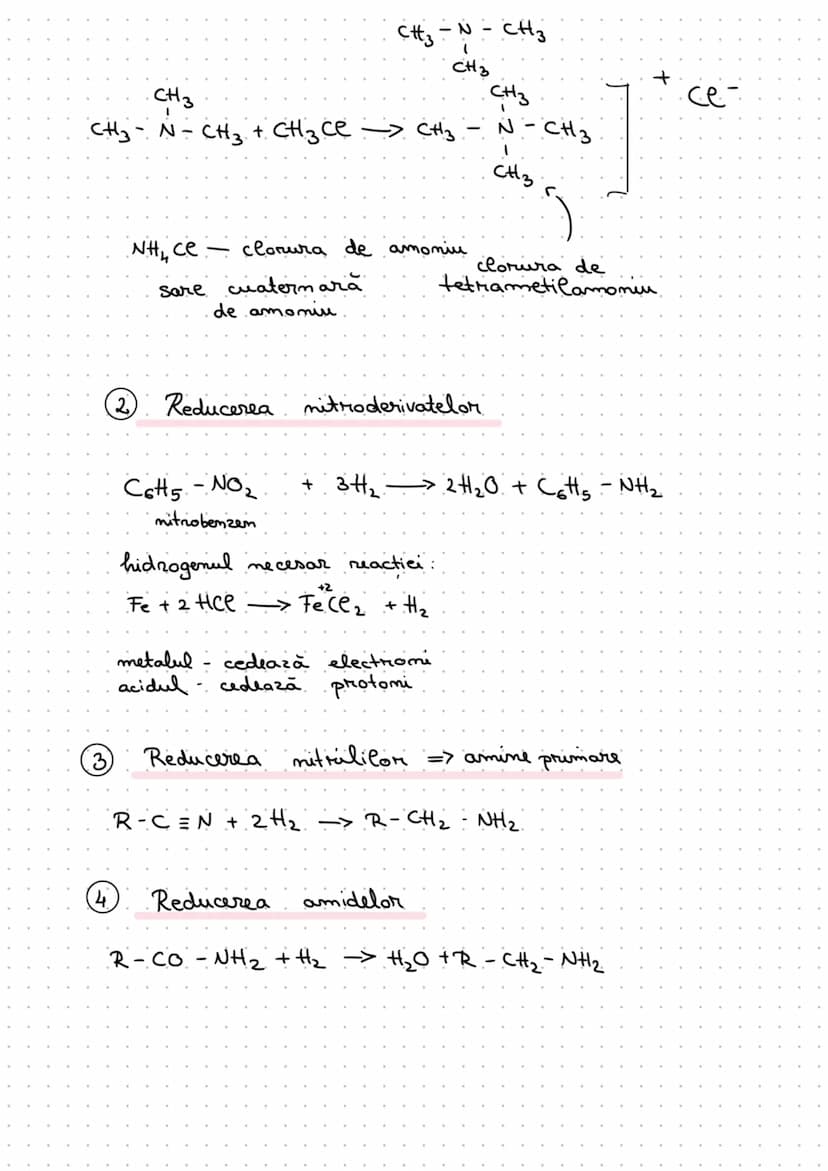 CH3 - N - CH3
CH3
CH3
CH3 - N - CH3 + CH3Cl → CH3 - N - CH3 ] + Cl-
CH3
CH3
NH4Cl — clorura de amoniu
sare cuaternară
de amoniu
clorura de
tetrametilamoniu
2 Reducerea nitroderivatelor
C6H5 - NO2 + 3H2 → 2H2O + C6H5 - NH2
nitrobenzen
hidrogenul necesar reacției:
Fe + 2HCl → Fe+2Cl2 + H2
metalul - cedează electroni
acidul - cedează protoni
3 Reducerea nitrililor => amine primare
R-C≡N + 2H2 → R-CH2 - NH2
4 Reducerea amidelor
R-CO-NH2 + H2 → H2O + R-CH2-NH2